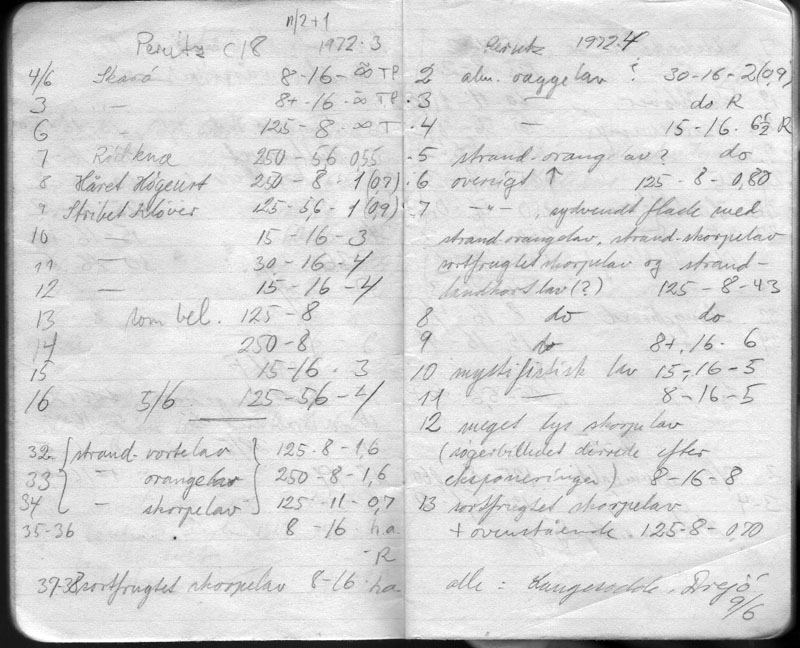 n/2+1
Perutz C18 1972.3
4/6 Skarø 8-16-∞ TP
3 — 8+-16-∞ TP
6 - 125-8-∞ T
7 Rödknæ 250-56 055
8 Håret Högeurt 250-8-1(0,7)
9 Stribet Kløver 125-5,6-1(0,9)
10 — 15-16-3
11 — 30-16-4
12 — 15-16-4
13 som bel. 125-8
14 250-8
15 15-16-3
16 5/6 125-5,6-4
32 strand-vortelav 125-8-1,6
33 " orangelav 250-8-1,6
34 - skorpelav 125-11-0,7
35-36 8-16 h.a.
-R
37-38 sortfrugtet skorpelav 8-16 h.a.
Perutz 1972.4
2 alm. raggelav ? 30-16-2(0,9)
3 — do R
4 — 15-16-6½ R
5 strand-orangelav? do
6 oversigt ↑ 125-8-0,80
7 -"-, sydvendt flade med
strand-orangelav, strand-skorpelav
sortfrugtet skorpelav og strand-
(?) 125-8-43
8 do do
9 do 8+,16-6
10 mystifistisk lav 15-,16-5
11 — 8-16-5
12 meget lys skorpelav
(søgerbilledet dirrede efter
eksponeringen( 8-16-8
13 sortfrugtet skorpelav
+ ovenstående. 125-8-0,70
alle : Langesodde, Drejö
9/6